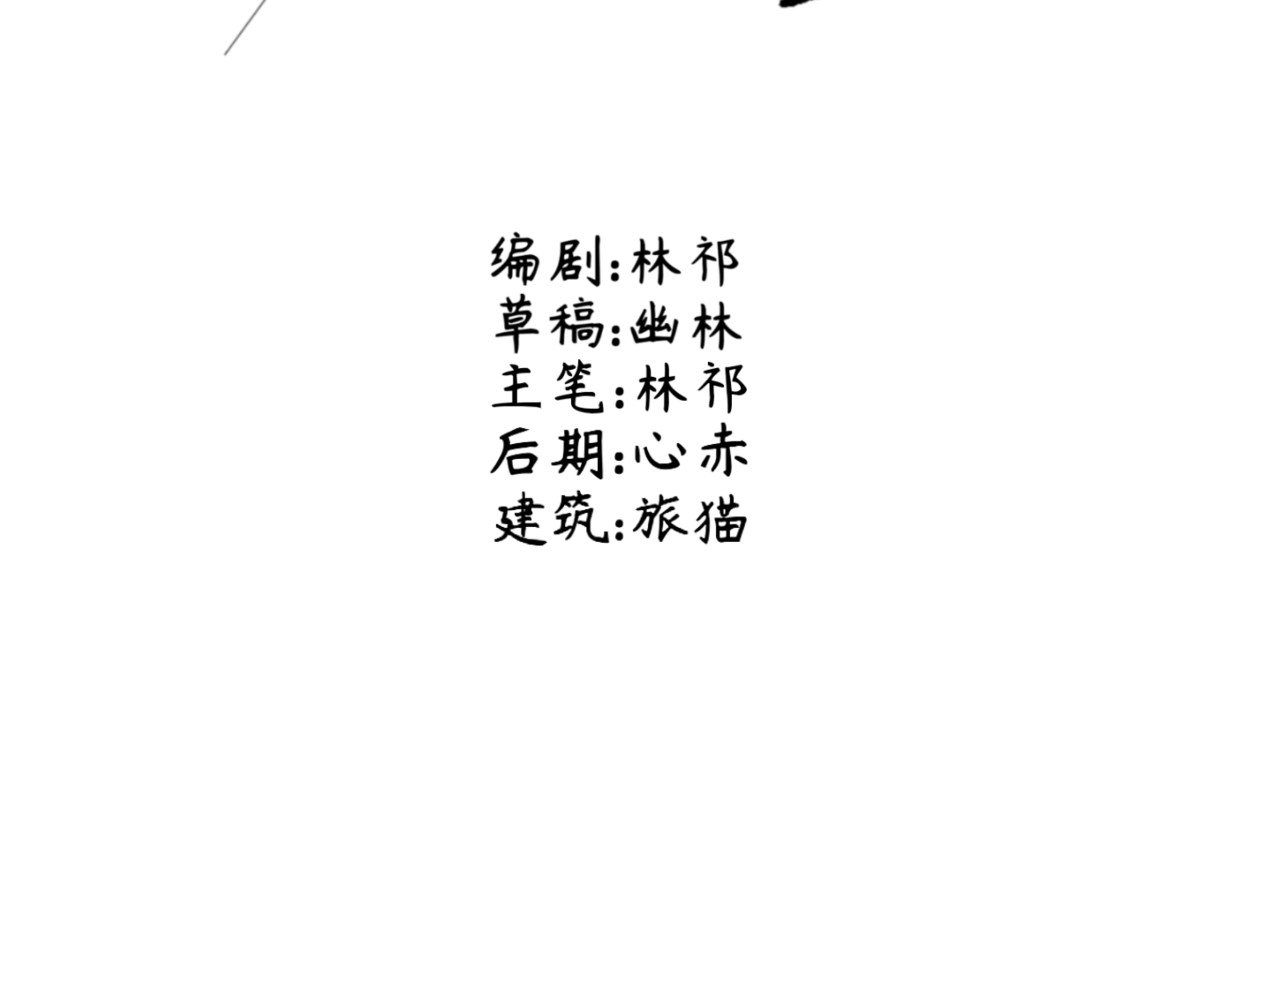 编剧:林祁
草稿:幽林
主笔:林祁
后期:心赤
建筑:旅猫